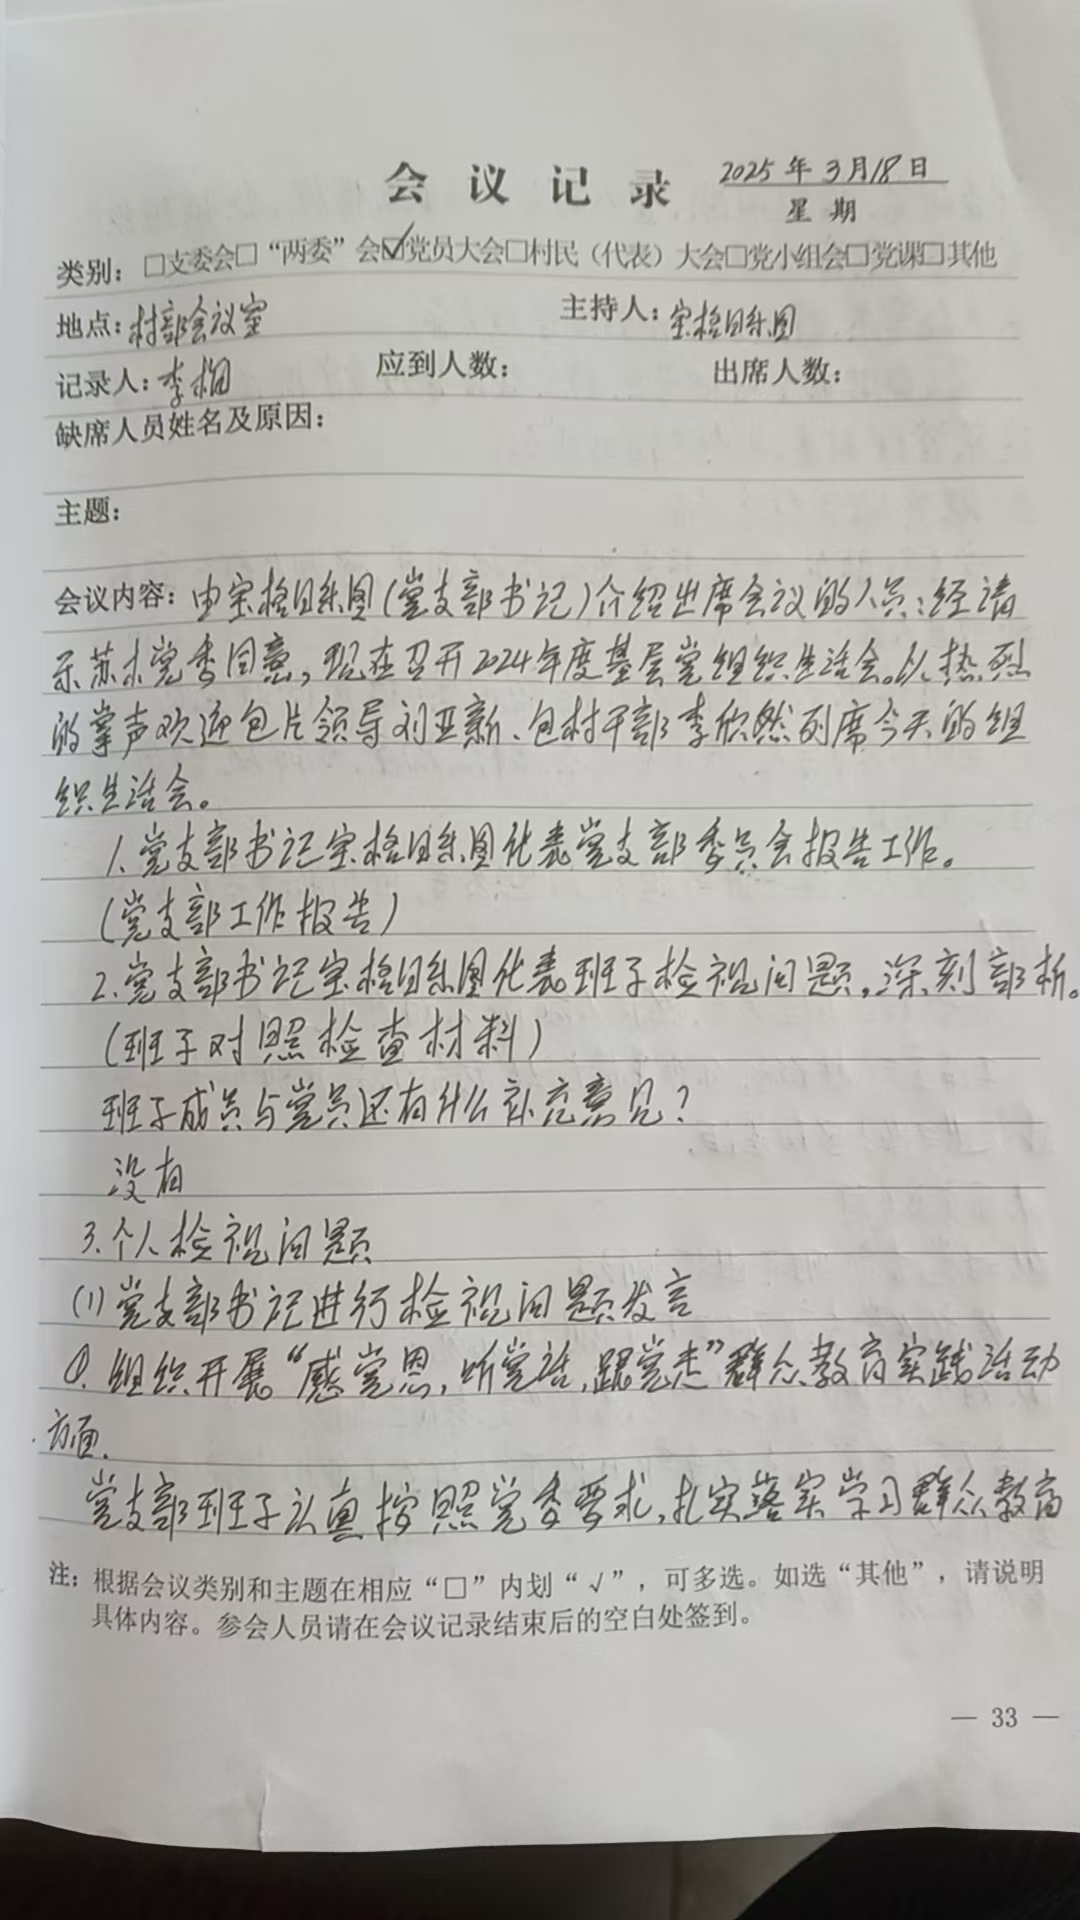 会议记录 2025年3月18日
星期
类别：□支委会□“两委”会☑党员大会□村民（代表）大会□党小组会□党课□其他
地点：村部会议室 主持人：宝格日乐图
记录人：李栩 应到人数： 出席人数：
缺席人员姓名及原因：
主题：
会议内容：由宝格日乐图(党支部书记)介绍出席会议的人员：经请
示苏木党委同意，现在召开2024年度基层党组织生活会。以热烈
的掌声欢迎包片领导刘亚新、包村干部李欣然列席今天的组
织生活会。
1.党支部书记宝格日乐图代表党支部委员会报告工作。
(党支部工作报告)
2.党支部书记宝格日乐图代表班子检视问题，深刻部析。
(班子对照检查材料)
班子成员与党员还有什么补充意见？
没有
3.个人检视问题
(1)党支部书记进行检视问题发言
①.组织开展“感党恩，听党话，跟党走”群众教育实践活动
方面.
党支部班子认真按照党委要求，扎实落实学习群众教育
注：根据会议类别和主题在相应“□”内划“√”，可多选。如选“其他”，请说明
具体内容。参会人员请在会议记录结束后的空白处签到。
— 33 —